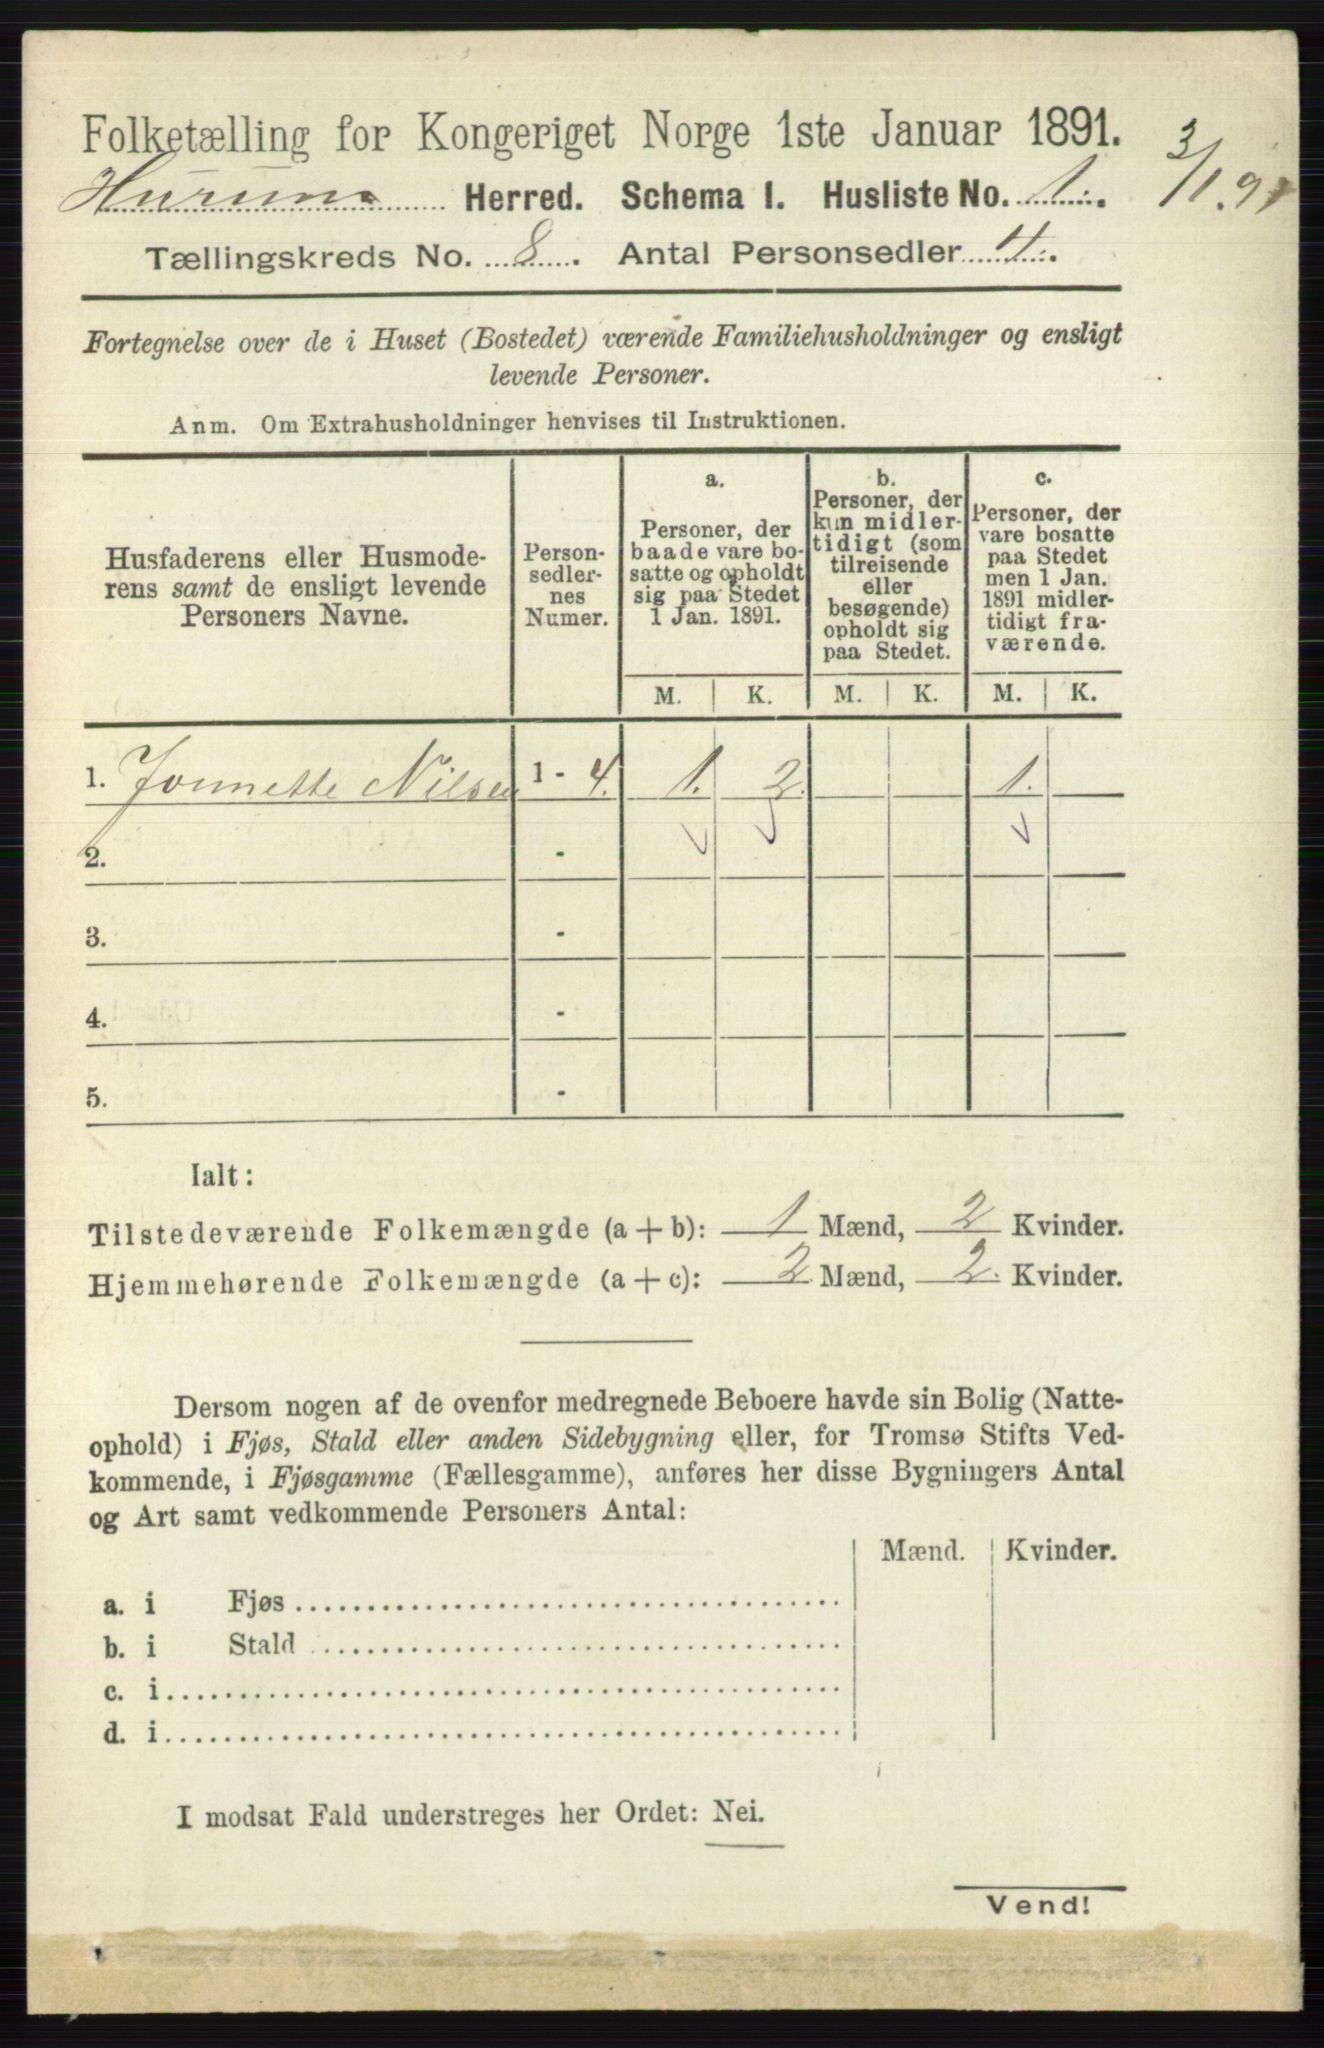 Folketælling for Kongeriget Norge 1ste Januar 1891.
3/1.91
Hurum Herred. Schema I. Husliste No. 1.
Tællingskreds No. 8. Antal Personsedler 4.
Fortegnelse over de i Huset (Bostedet) værende Familiehusholdninger og ensligt
levende Personer.
Anm. Om Extrahusholdninger henvises til Instruktionen.
Husfaderens eller Husmode-
rens samt de ensligt levende
Personers Navne.
Person-
sedler-
nes
Numer.
a.
Personer, der
baade vare bo-
satte og opholdt
sig paa Stedet
1 Jan. 1891.
b.
Personer, der
kun midler-
tidigt (som
tilreisende
eller
besøgende)
opholdt sig
paa Stedet.
c.
Personer, der
vare bosatte
paa Stedet
men 1 Jan.
1891 midler-
tidigt fra-
værende.
M. K. M. K. M. K.
1. Jonnette Nilsen 1 - 4. 1. 2. 1.
2. -
3. -
4. -
5. -
Ialt:
Tilstedeværende Folkemængde (a + b): 1 Mænd, 2 Kvinder.
Hjemmehørende Folkemængde (a + c): 2 Mænd, 2. Kvinder.
Dersom nogen af de ovenfor medregnede Beboere havde sin Bolig (Natte-
ophold) i Fjøs, Stald eller anden Sidebygning eller, for Tromsø Stifts Ved-
kommende, i Fjøsgamme (Fællesgamme), anføres her disse Bygningers Antal
og Art samt vedkommende Personers Antal:
Mænd. Kvinder.
a. i Fjøs
b. i Stald
c. i
d. i
I modsat Fald understreges her Ordet: Nei.
Vend!